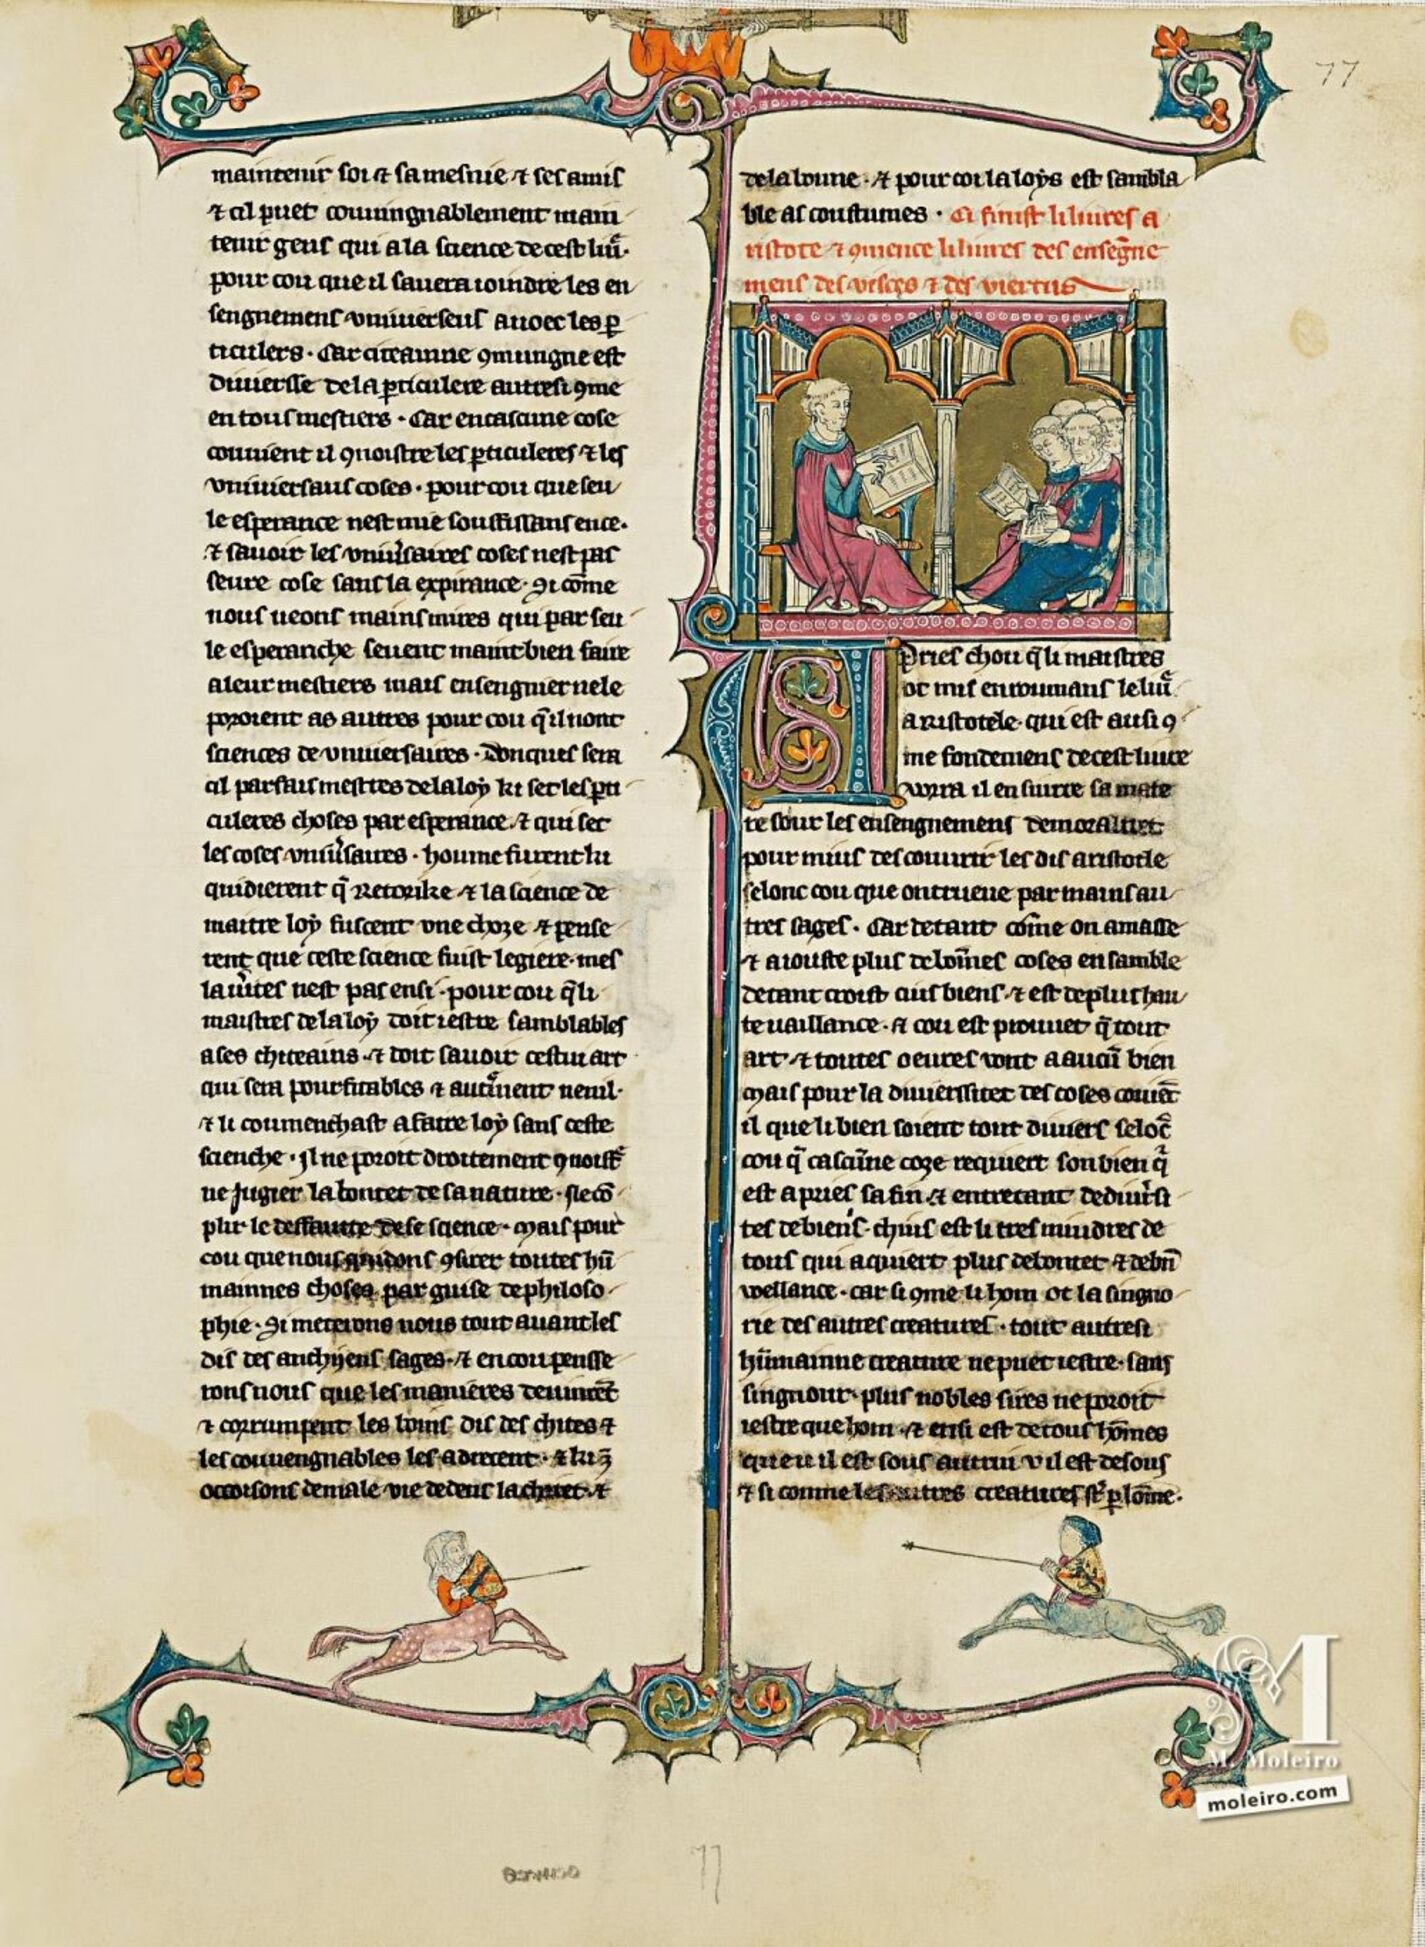 77
maintenir soi ⁊ sa mesnie ⁊ ses amis
⁊ cil puet couuingnablement main
tenir gens qui a la science de cest liũ.
pour cou que il sauera ioindre les en
sengnemens vniuerseus auoec les p̱
ticulers. Car citeainne ꝯmungne est
diuersse de la ꝑticulere autresi ꝯme
en tous mestiers. Car en cascune cose
couuient il ꝯnoistre les ꝑticuleres ⁊ les
vniuersaus coses. pour cou que seu
le esperance nest mie souffissans ence.
⁊ sauoir les vniũsaires coses nest pas
seure cose sans la expirance. Si cõme
nous ueons mains mires qui par seu
le esperanche seuent maint bien faire
a leur mestiers mais ensengnier ne le
poroient as autres pour cou q̃ il nont
sciences de vniuersaires. Donques sera
cil parfais mestres de la loy ki set les ꝑti
culeres choses par esperance. ⁊ qui set
les coses vniũsaires. houme furent ki
quidierent q̃ Retorike ⁊ la science de
maitre loy fuscent vne choze ⁊ pense
rent que ceste science fuist legiere. mes
la ũites nest pas ensi. pour cou q̃ li
maistres de la loy doit iestre samblables
a ses chiteains. ⁊ doit sauoir cestui art
qui sera pourfitables ⁊ autr̃ment nenil.
⁊ li coumenchast a faire loy sans ceste
scienche. Il ne poroit droitement ꝯnoist̃
ne jugier la bontet de sa nature.
plir le deffaute de se science. Mais pour
cou que nous ꝯsirer toutes hũ
mainnes choses par guise de philoso
phie. Si meterons nous tout auant les
dis des anchijens sages. ⁊ en cou pensse
rons nous que les manieres
⁊ corrumpent les boins dis des chites ⁊
les couuengnables les adrecent. ⁊ ki
occoisons de male vie dedens la chitet. ⁊
de la boune. ⁊ pour coi la loys est sambla
ble as coustumes. Ci finist li liures a
ristote ⁊ ꝯmence li liures des ensegne
mens des visces ⁊ des viertus
Apries chou q̃ li maistres
ot mis en roumans le liũ
aristotele. qui est ausi ꝯ
me fondemens de cest liure
vorra il ensuirre sa mate
re sour les ensengnemens de moralitet
pour mius descouurir les dis aristotle
selonc cou que on trueue par mains au
tres sages. Car de tant cõme on amasse
⁊ aiouste plus de boĩnes coses ensamble
de tant croist cius biens. ⁊ est de plus hau
te uaillance. ⁊ cou est prouuet q̃ tout
art ⁊ toutes oeures vont a aucũ bien
Mais pour la diuerssitet des coses couiẽt
il que li bien soient tout diuers selõc
cou q̃ cascũne coze requiert son bien q̃
est apries sa fin. ⁊ entretant de diũsi
tes de biens. chius est li tres mindres de
tous qui aquiert plus de bontet ⁊ de bñ
wellance. car si ꝯme li hom ot la singno
rie des autres creatures. tout autresi
humainne creature ne puet iestre sans
singnour. plus nobles sires ne poroit
iestre que hom. ⁊ ensi est de tous hõmes
que u il est sous autrui v il est desous
⁊ si comme les autres creatures sõt ꝑ lõme.
M. Moleiro
moleiro.com
77